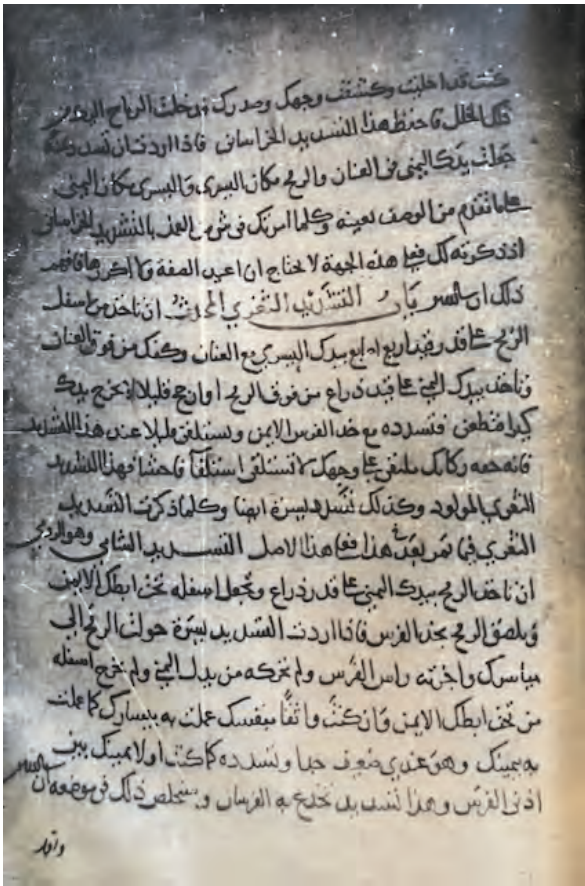 كنت قد اخليت وكشفت وجهك وصدرك ودخلت الرماح اليك من
ذلك الخلل فاحفظ هذا التسديد الخراساني فاذا اردت ان تسدد يسرة
جعلت يدك اليمنى في العنان والرمح مكان اليسرى واليسرى مكان اليمنى
على ما تقدم من الوصف بعينه وكلما امرتك في شي من العمل بالتسديد الخراساني
اذ ذكرته لك فعلى هذه الجهة لا تحتاج ان اعيد الصفة ولا اكررها فافهم
ذلك ان باب التسديد الثغري المحدث ان تاخذ من اسفل
الرمح على قدر اربع اصابع بيدك اليسرى مع العنان وكفك من فوق العنان
وتاخذ بيدك اليمنى على قيد ذراع من فوق الرمح او ارجح قليلا لا تخرج يدك
كثيرا فتطعن فتسدده مع خد الفرس الايمن وتستلقي قليلا عند هذا التسديد
فانه حصه وكانك ملقى على وجهك لا تستلقي استلقآ فاحشا فهذا التسديد
الثغري المولود وكذلك تسدد يسرة ايضا وكلما ذكرت التسديد
الثغري فيما يمر بعد هذا فعلى هذا الاصل التسديد الثاني وهو الرومي
ان تاخذ الرمح بيدك اليمنى على قدر ذراع وتجعل اسفله تحت ابطك الايمن
ويلصق الرمح بخد الفرس فاذا اردت التسديد يسرة حولت الرمح الى
مياسرك واجزته راس الفرس ولم تحركه من يدك اليمنى ولم تخرج اسفله
من تحت ابطك الايمن وان كنت واثقا بنفسك عملت به بيسارك كما عملت
به بيمينك وهو عندي ضعيف جدا وتسدده كما كنت اولا بيمينك بين
اذني الفرس وهذا تسديد تخدع به الفرسان ويتخلص ذلك في موضعه ان